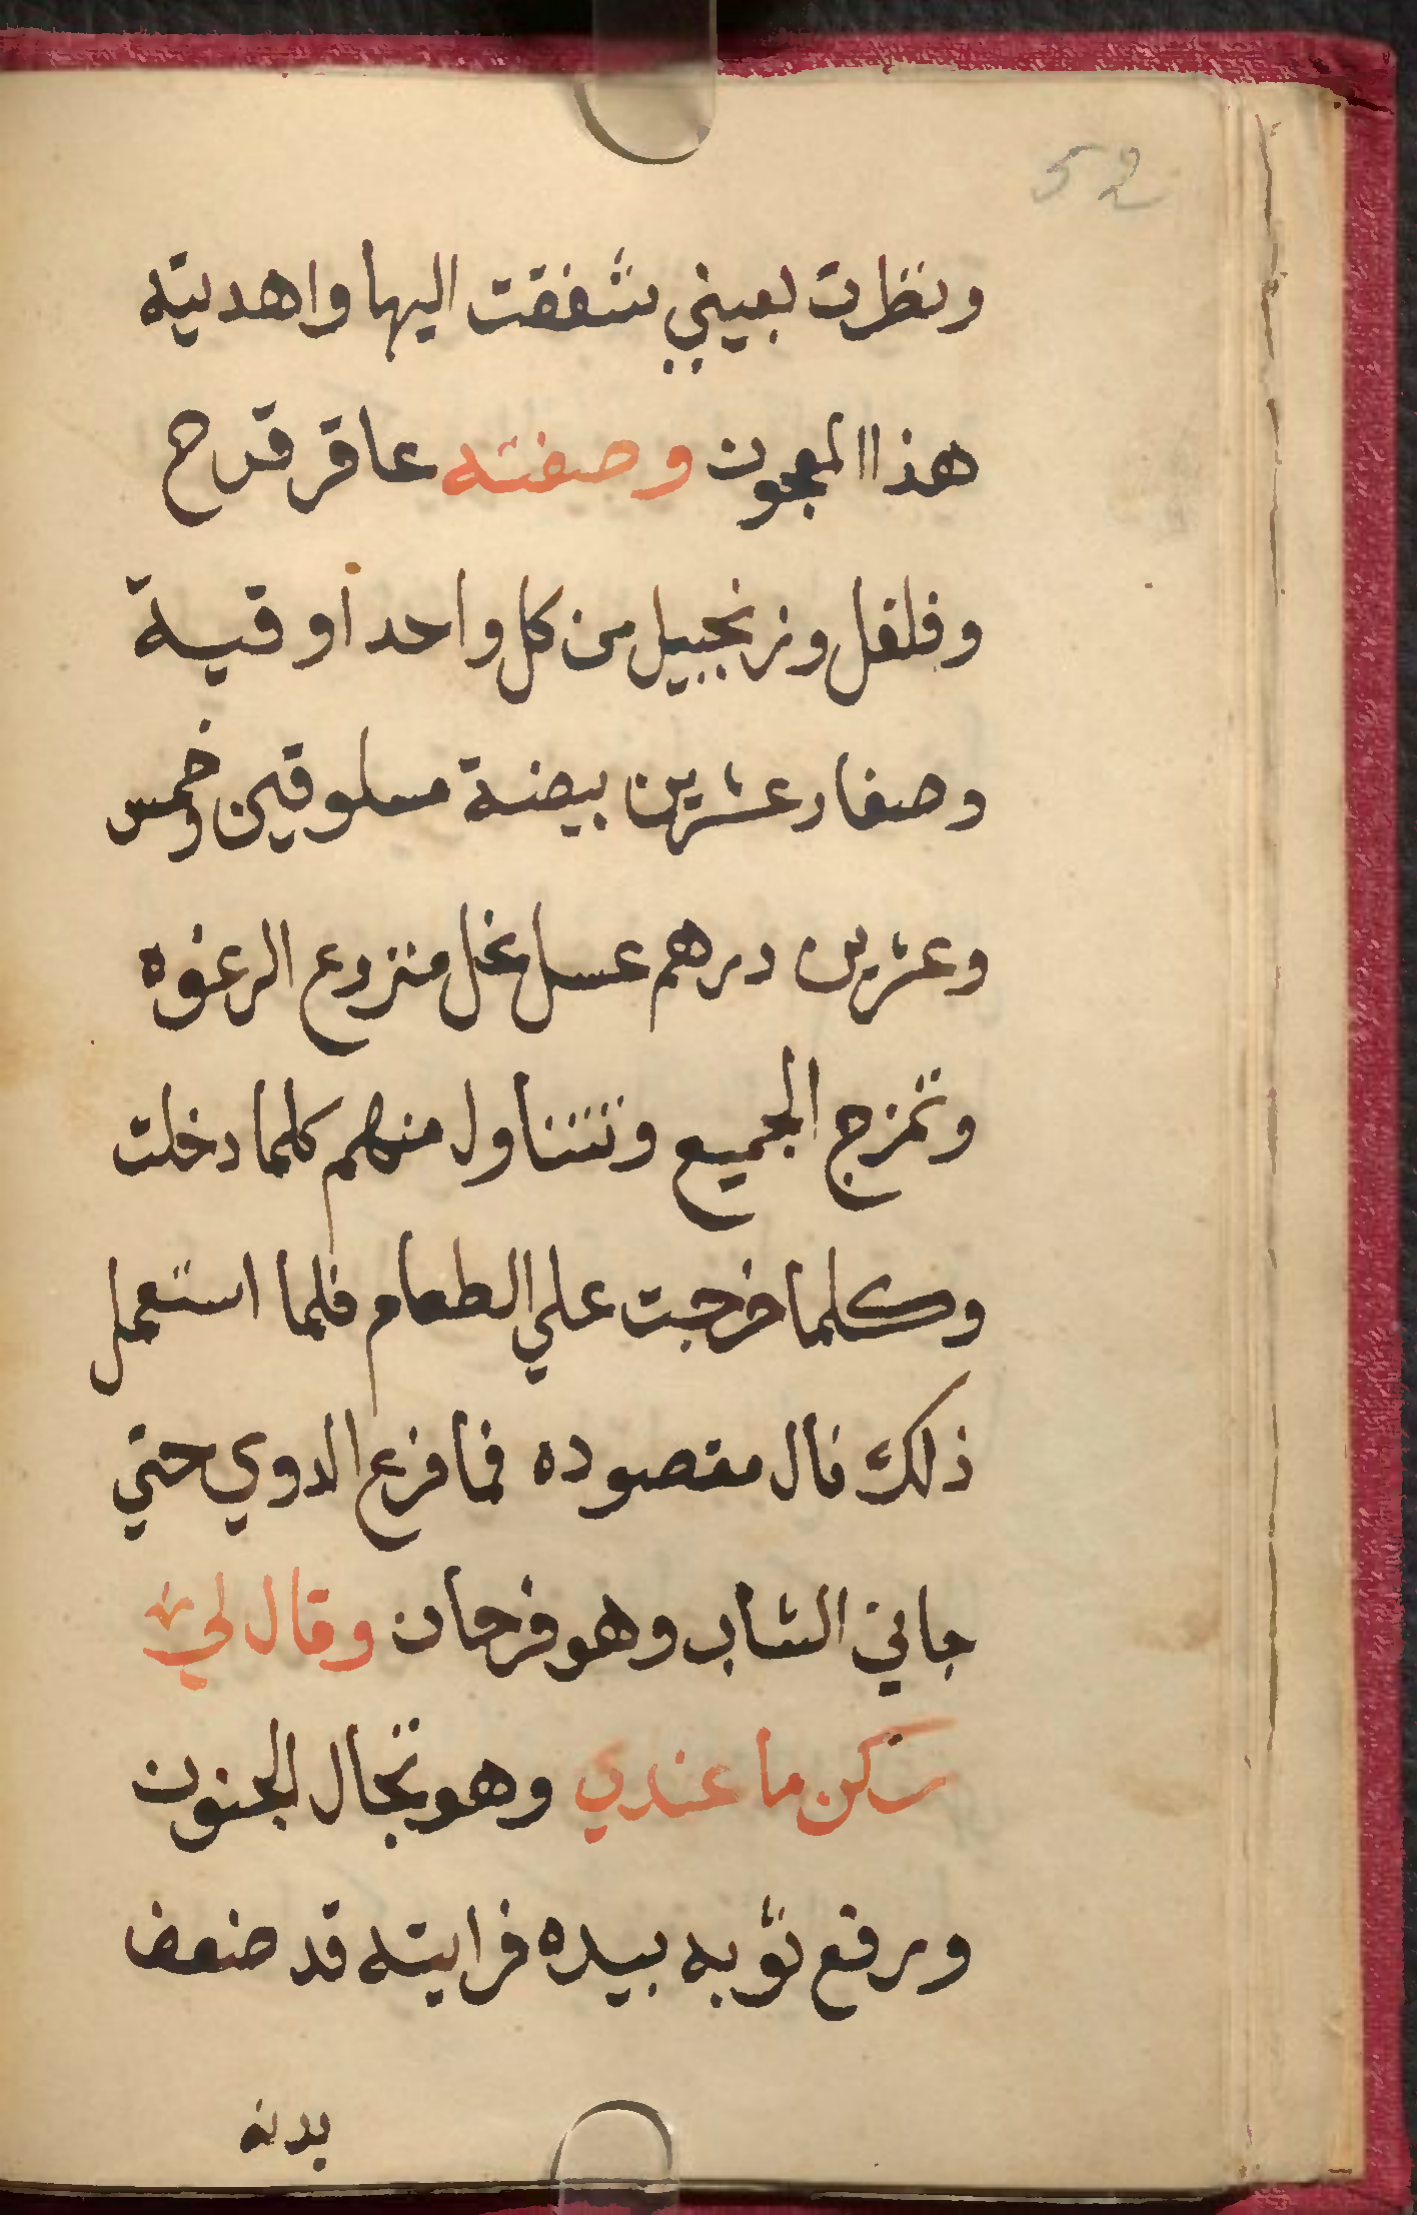 52
ونظرت بعيني شفقت اليها واهديته
هذا المعجون وصفته عاقر قرح
وفلفل وزنجبيل من كل واحد أوقية
وصفار عشرين بيضة مسلوقين وخمس
وعشرين درهم عسل نحل منزوع الرغوه
وتمزج الجميع وتتناول منهم كلما دخلت
وكلما خرجت علي الطعام فلما استعمل
ذلك نال مقصوده فما فرغ الدوي حتي
جاني الشاب وهو فرحان وقال لي
سكن ما عندي وهو بحال الجنون
ورفع ثوبه بيده فرايته قد ضعف
بدنه